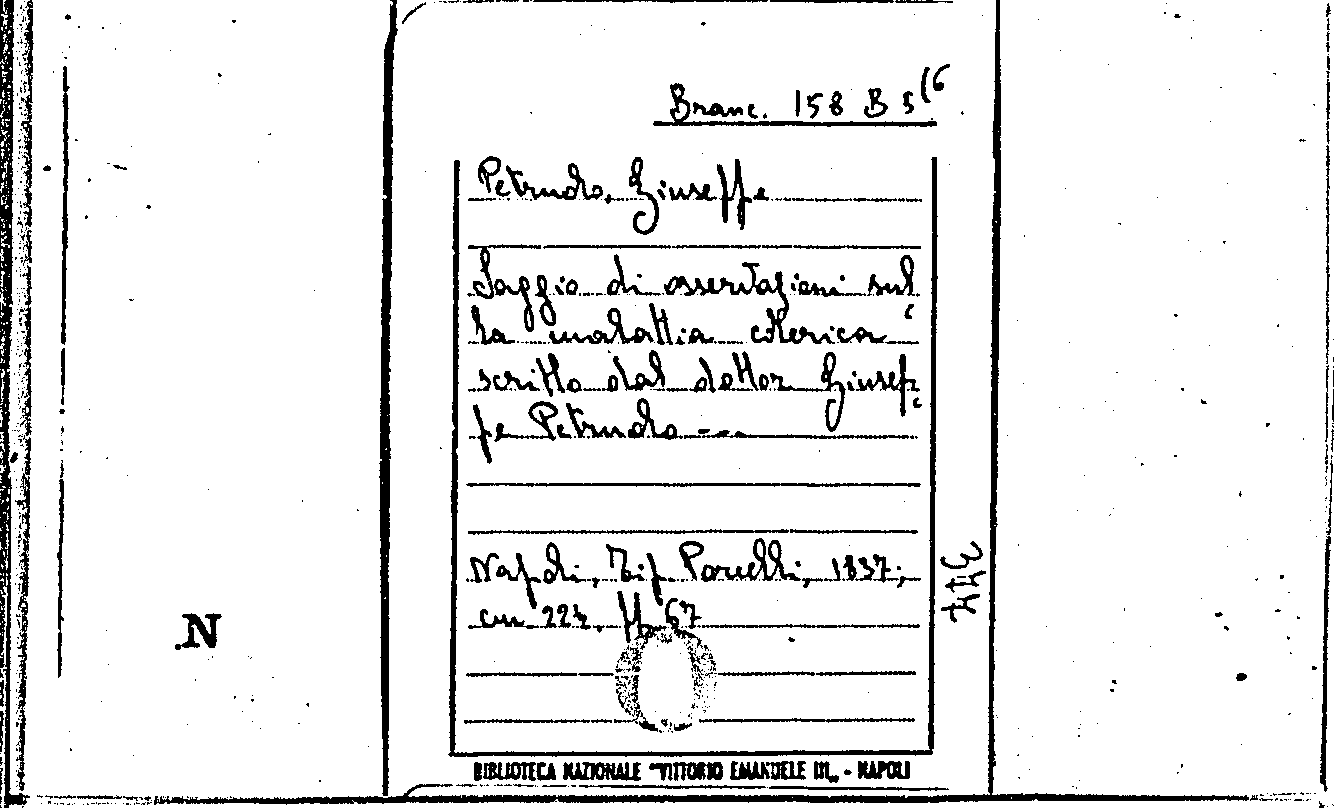 Branc. 158 B 5(6
Petrudo, Giuseppe
Saggio di osservazioni sul
la malattia colerica
scritto dal dottor Giusep
pe Petrudo ---
Napoli, Tip. Porcelli, 1837;
cm. 22½. pp. 67
N
BIBLIOTECA NAZIONALE "VITTORIO EMANUELE III" - NAPOLI